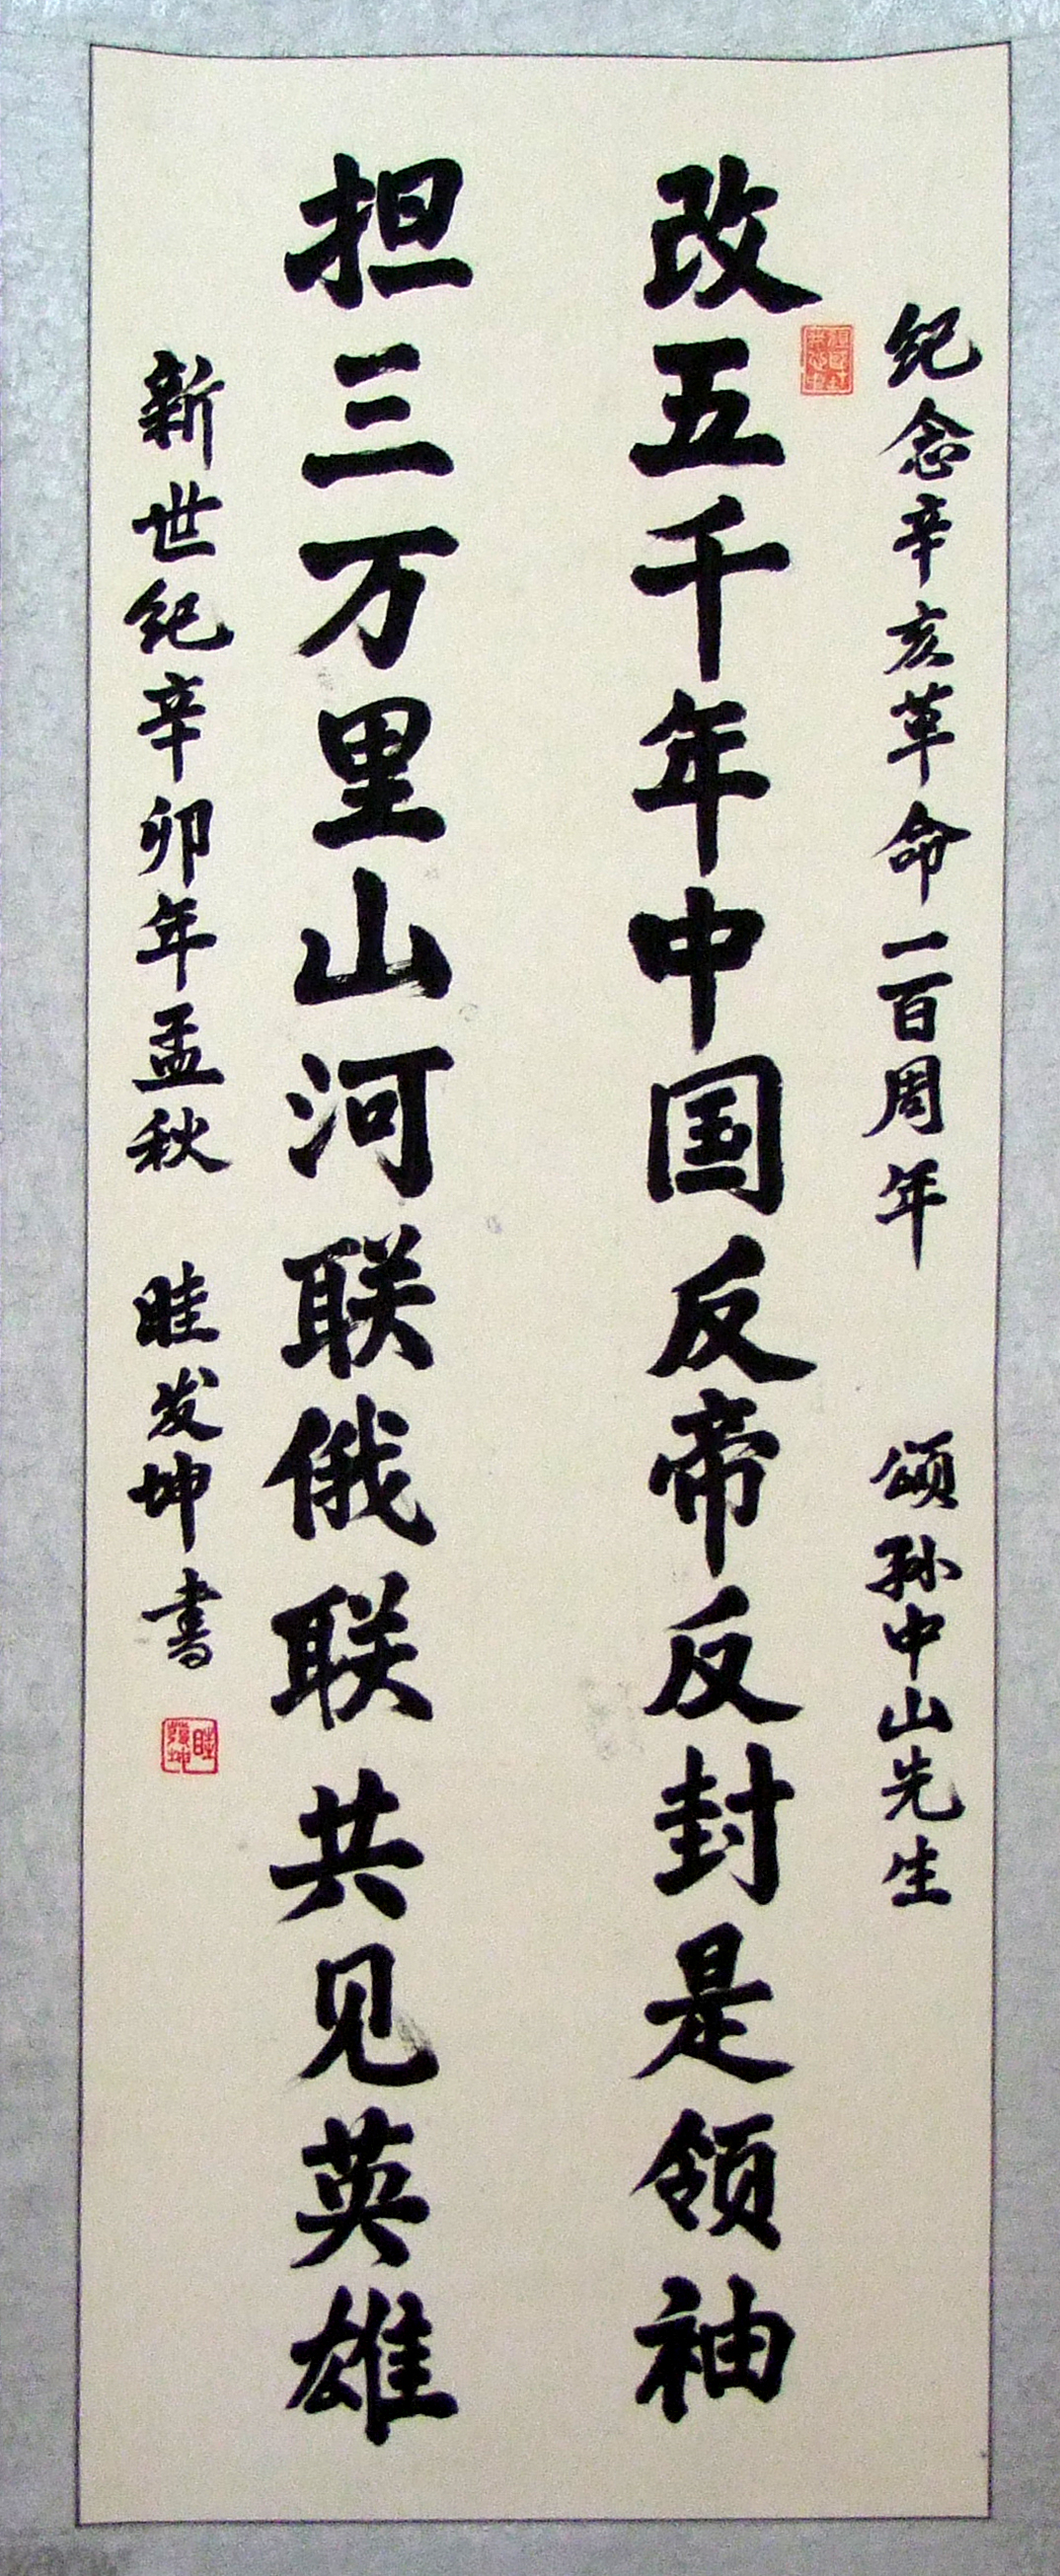 纪念辛亥革命一百周年 颂孙中山先生
改五千年中国反帝反封是领袖
担三万里山河联俄联共见英雄
新世纪辛卯年孟秋 眭发坤书